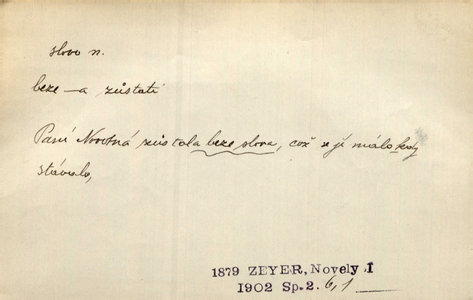 slovo n.
beze —a zůstati
Paní Novotná zůstala beze slova, což se jí málokdy
stávalo,
1879 ZEYER, Novely I
1902 Sp. 2. 6,1